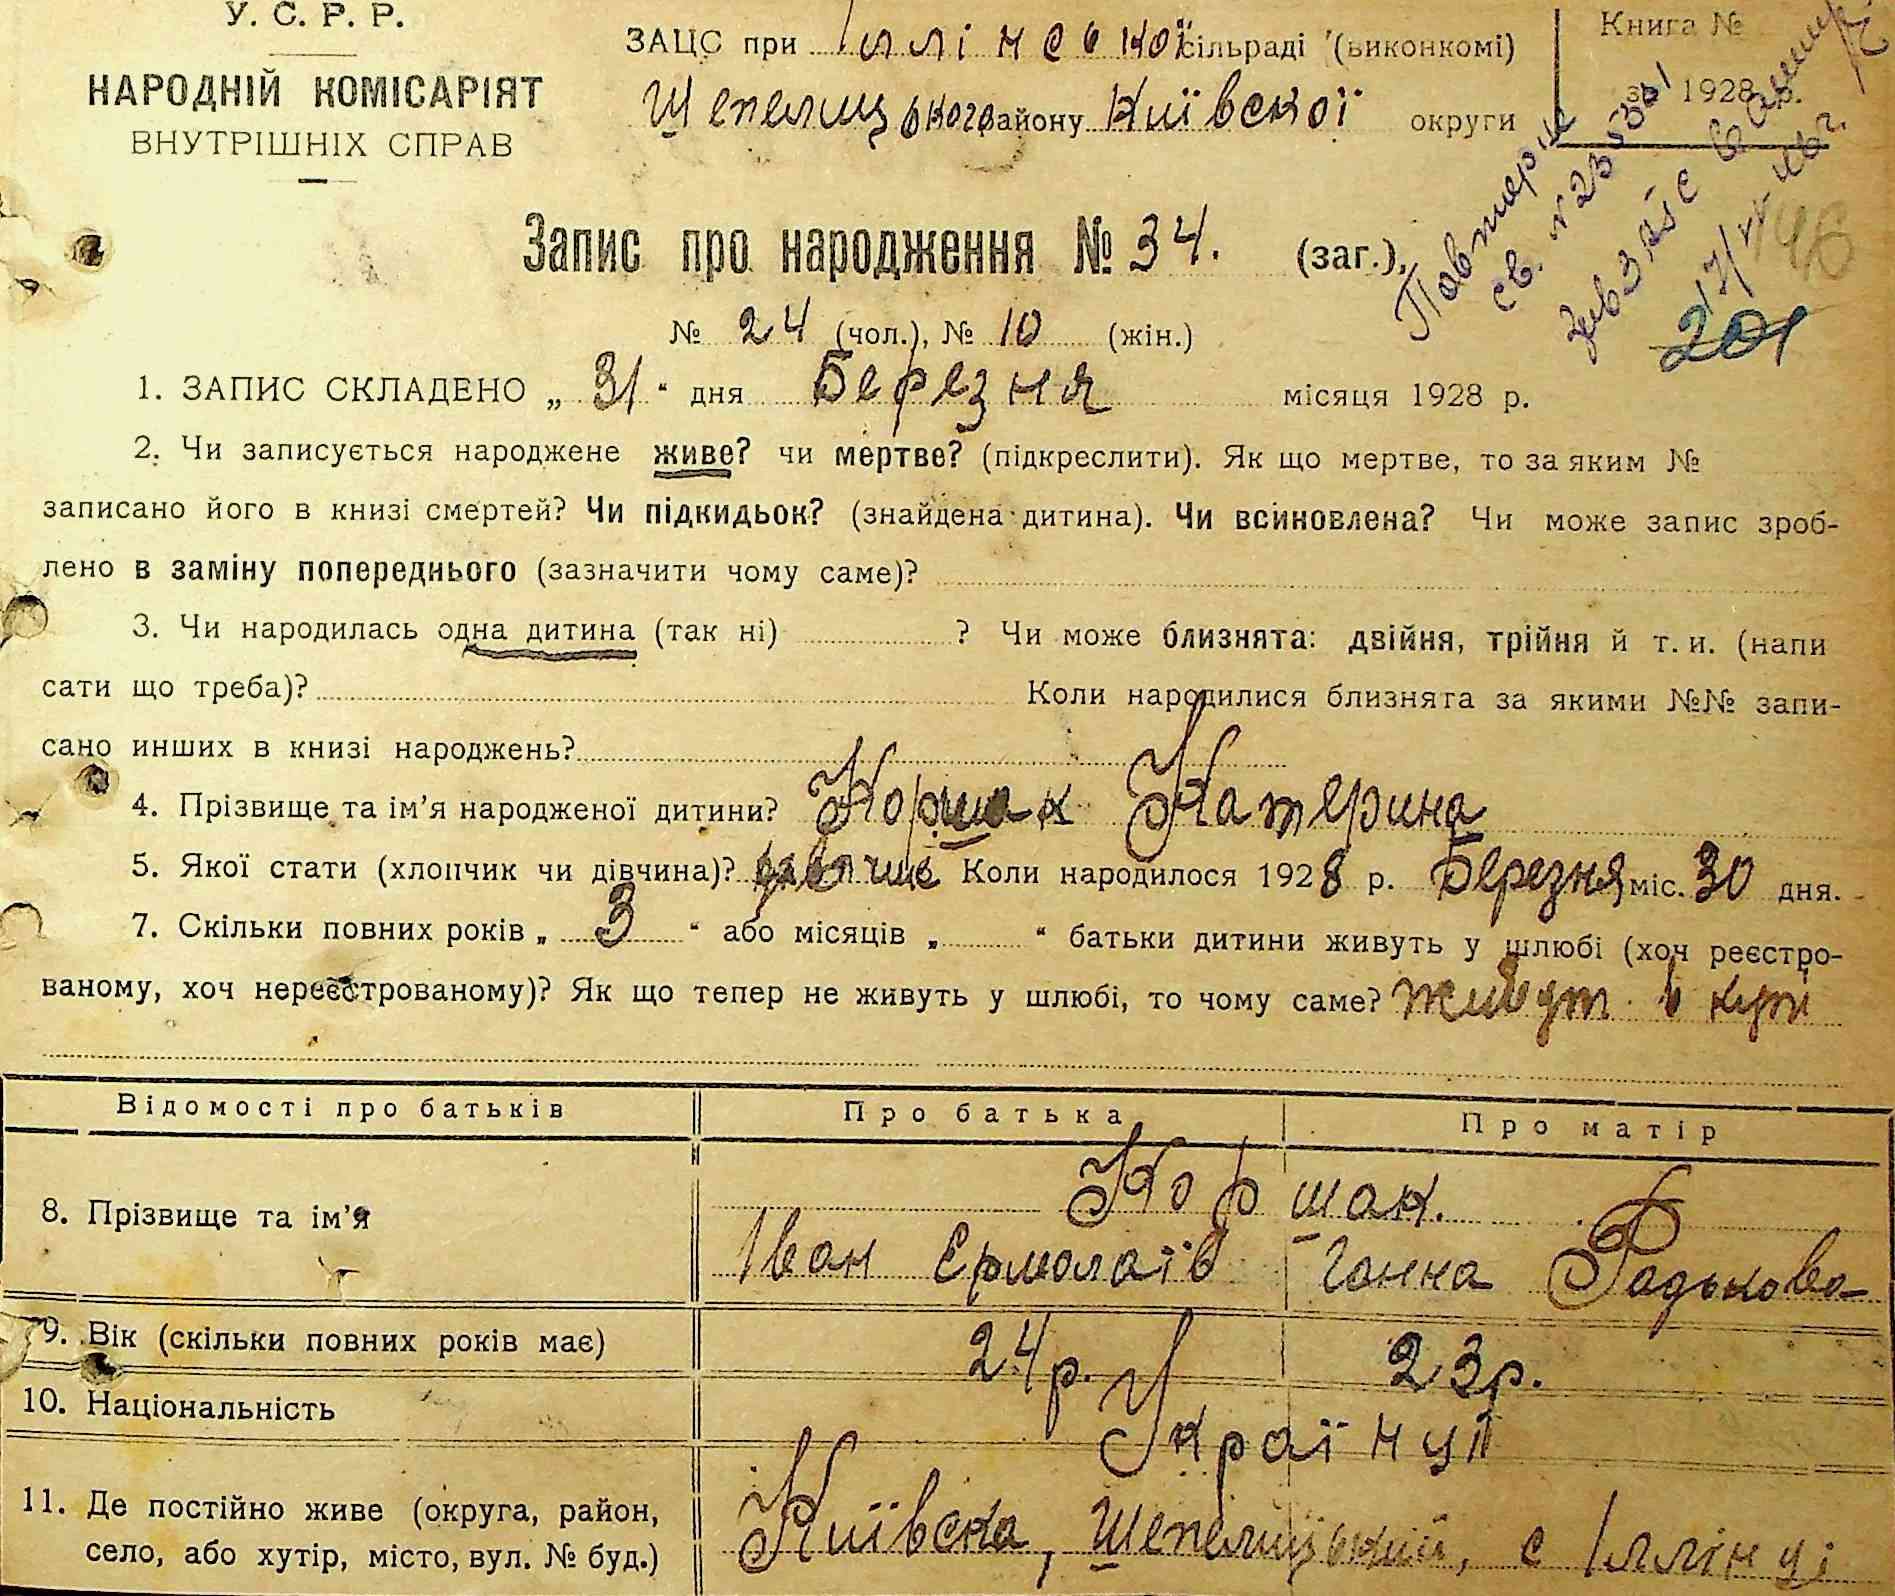 У. С. Р. Р.
НАРОДНІЙ КОМІСАРІЯТ
ВНУТРІШНІХ СПРАВ
ЗАЦС при Іллінської сільраді (виконкомі)
Шепелицького району Київської округи
Книга №
за 1928 р.
Повторне
св.
201
Запис про народження № 34. (заг.),
№ 24 (чол.), № 10 (жін.)
1. ЗАПИС СКЛАДЕНО „ 31 “ дня Березня місяця 1928 р.
2. Чи записується народжене живе? чи мертве? (підкреслити). Як що мертве, то за яким №
записано його в книзі смертей? Чи підкидьок? (знайдена дитина). Чи всиновлена? Чи може запис зроб-
лено в заміну попереднього (зазначити чому саме)?
3. Чи народилась одна дитина (так ні) ? Чи може близнята: двійня, трійня й т. и. (напи
сати що треба)? Коли народилися близнята за якими №№ запи-
сано инших в книзі народжень?
4. Прізвище та ім’я народженої дитини? Коршак Катерина
5. Якої стати (хлопчик чи дівчина)? Коли народилося 1928 р. Березня міс. 30 дня.
7. Скільки повних років „ 3 “ або місяців „ “ батьки дитини живуть у шлюбі (хоч реєстро-
ваному, хоч нереєстрованому)? Як що тепер не живуть у шлюбі, то чому саме? живут в купі
Відомості про батьків Про батька Про матір
8. Прізвище та ім’я Коршак.
Іван Єрмолаїв Ганна Радькова
9. Вік (скільки повних років має) 24 р. 23 р.
10. Національність Українці
11. Де постійно живе (округа, район,
село, або хутір, місто, вул. № буд.) Київська, Шепелицький, с Іллінці